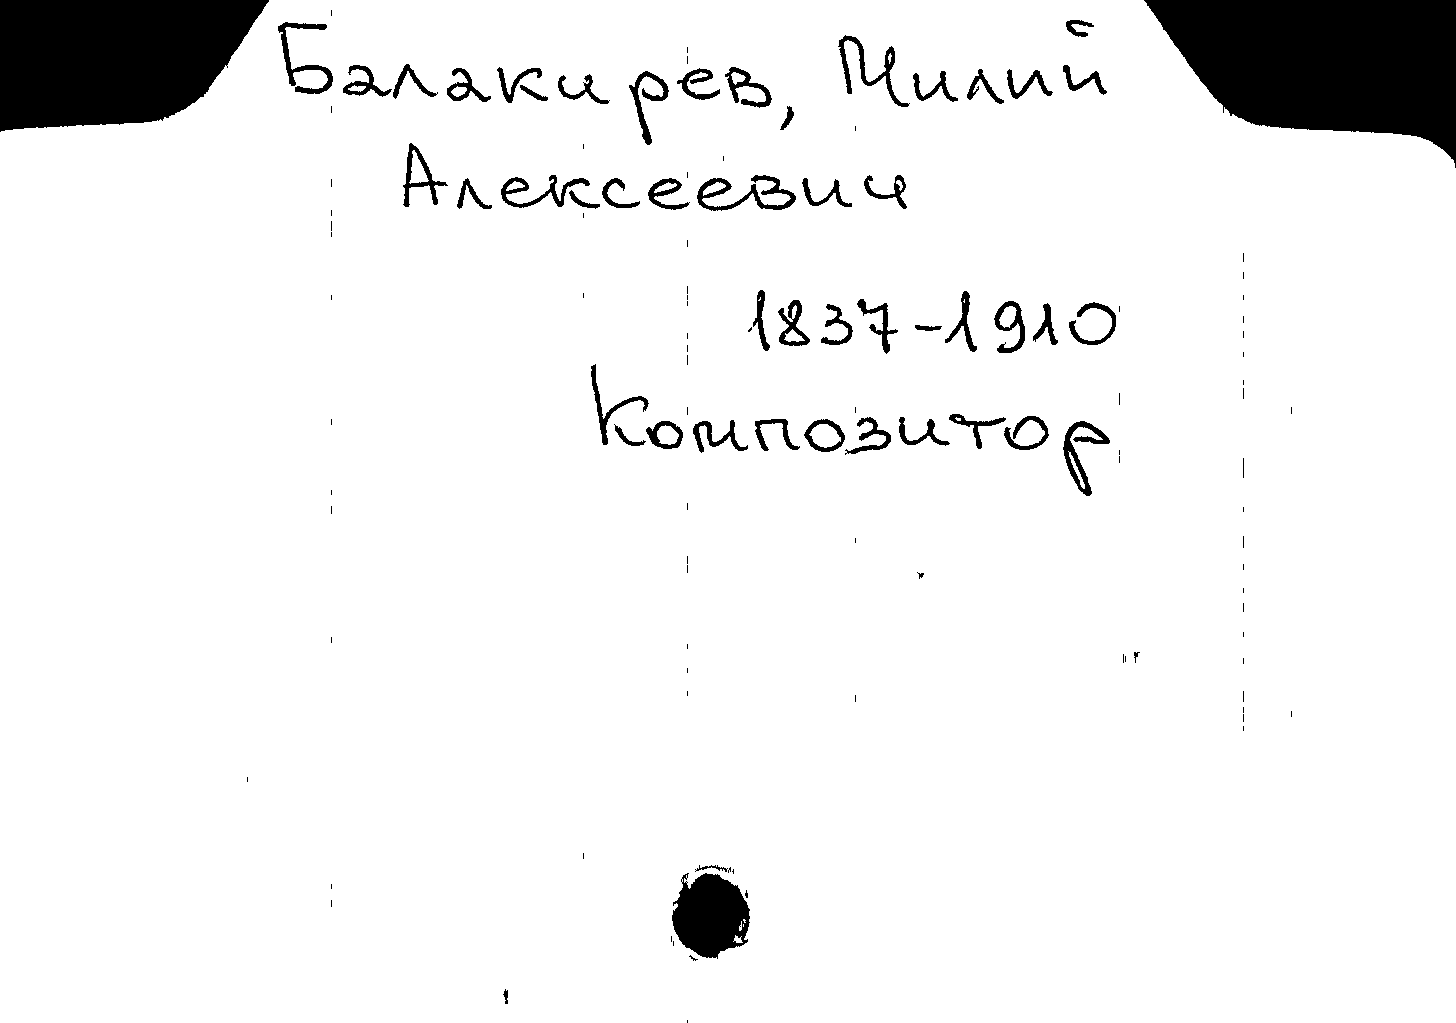 Балакирев, Милий
Алексеевич
1837-1910
Композитор